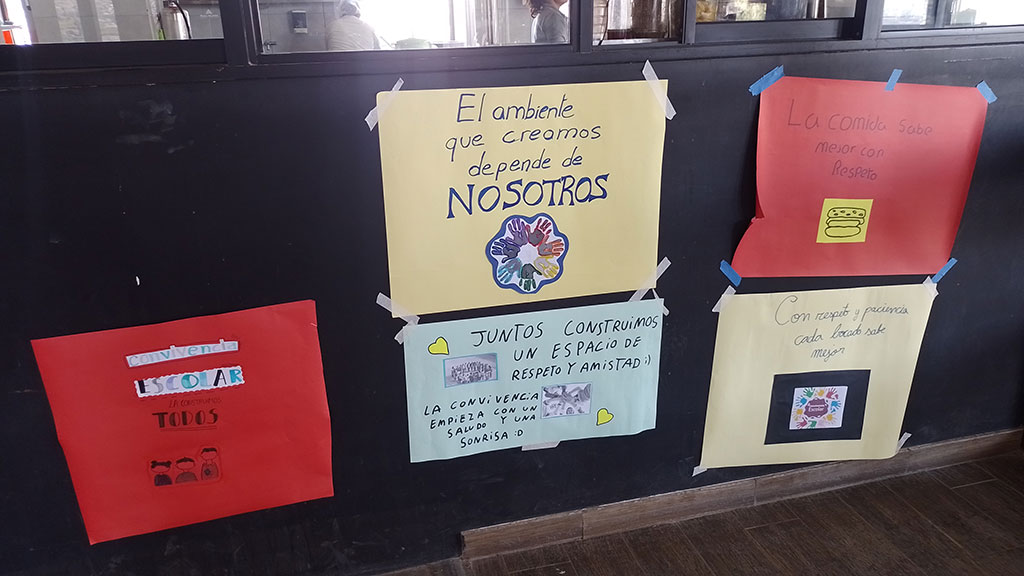 El ambiente
que creamos
depende de
NOSOTROS
La comida sabe
mejor con
Respeto
convivencia
ESCOLAR
LA CONSTRUIMOS
TODOS
JUNTOS CONSTRUIMOS
UN ESPACIO DE
RESPETO Y AMISTAD :)
LA CONVIVENCIA
EMPIEZA CON UN
SALUDO Y UNA
SONRISA :D
Con respeto y paciencia
cada bocado sabe
mejor
Escolar